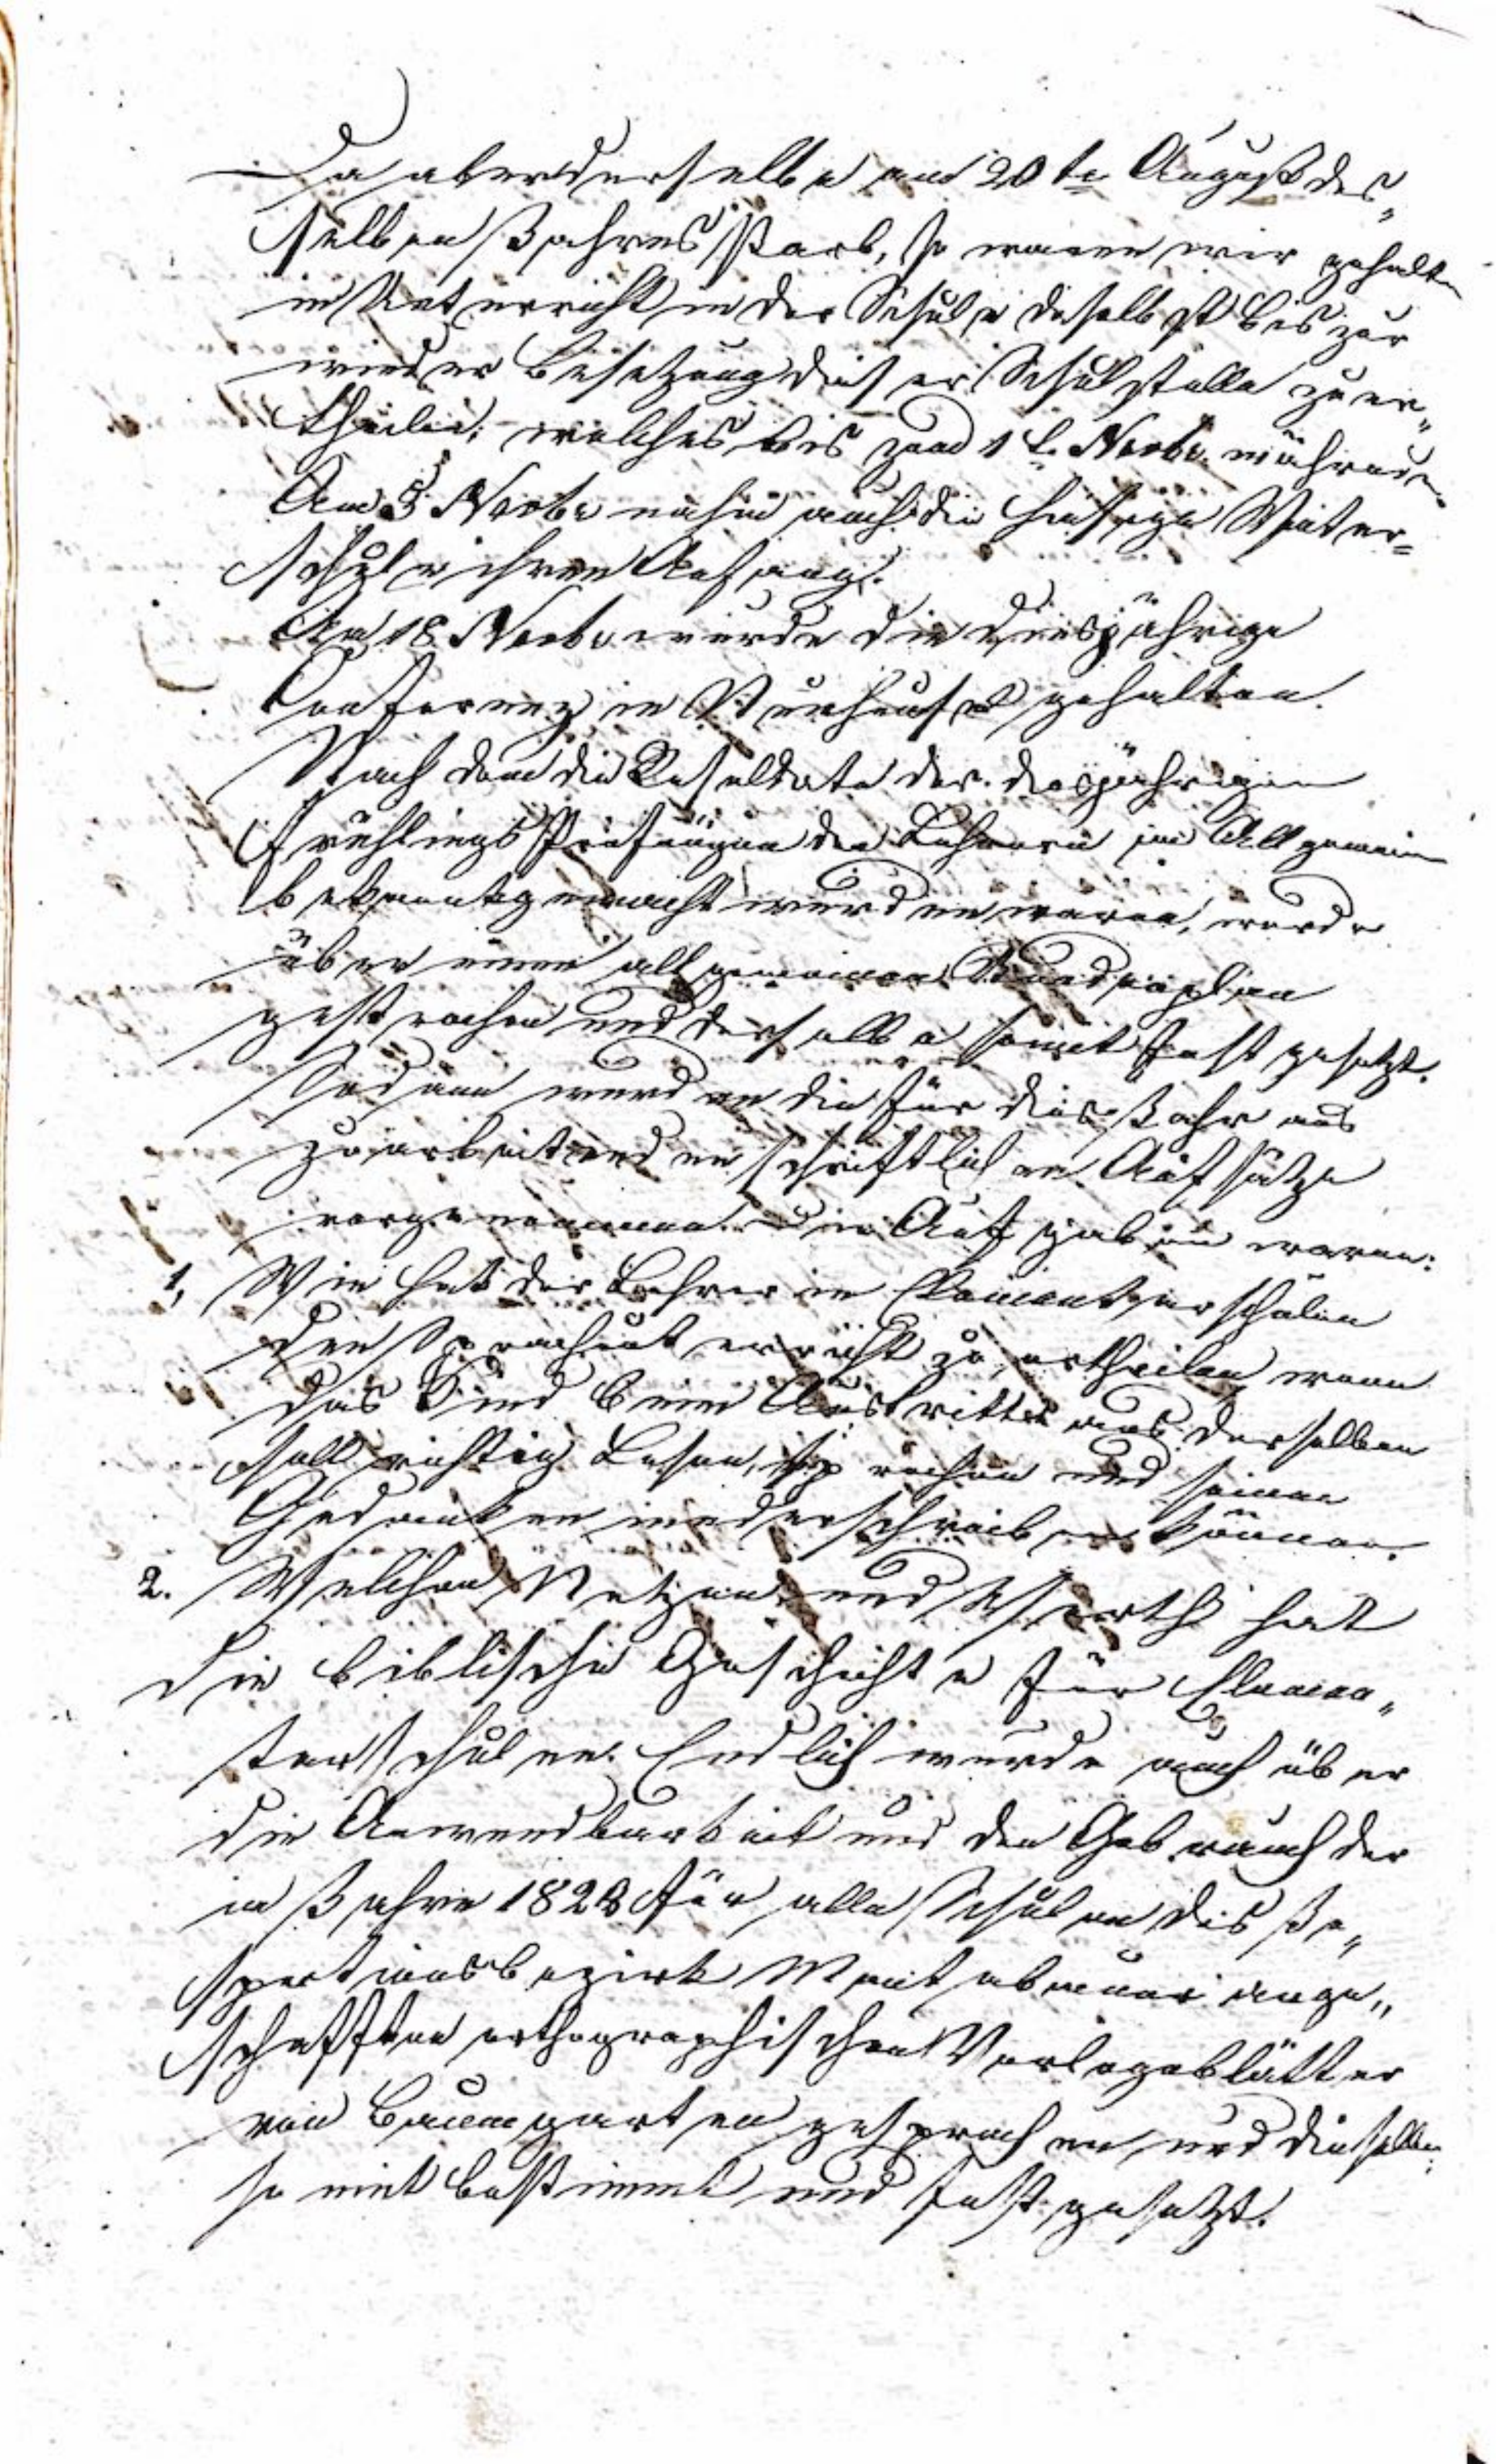 Da aber derselbe am 20te August des„
selben Jahres starb, so waren wir gehalten
in Unterricht in der Schule daselbst bis zur
wieder Besetzung dieser Schulstelle zu er„
theilen; welches bis zum 1t. Novbr. währende.
Am 3 Novbr nahm auch die hiesige Winter=
schule ihren Anfang.
Am 18. Novbr. wurde die diesjährige
Conferenz in gehalten.
Nach dem die Resultate der diesjährigen
Frühlings Prüfungen den Lehrern im Allgemein
bekannt gemacht wurden waren, wurde
über einen allgemeinen Stundenplan
gesprochen und derselbe somit fest gesetzt.
Sodann wurden die für dies Jahr aus
zuarbeitenden schriftlichen Aufsätze
vorgenommen. Die Aufgaben waren:
1, Wie hat der Lehrer in Elementarschulen
den Sprachunterricht zu ertheilen, wenn
das Kind beim Austritte aus derselben
soll richtig Lesen, sprechen und seine
Gedanken niederschreiben können.
2. Welchen Nutzen und Werth hat
die biblische Geschichte für Elemen„
tarschulen. Endlich wurde auch über
die Anwendbarkeit und den Gebrauch der
im Jahre 1828 für alle Schulen des In„
spectionsbezirk ange„
schafften orthographischen Vorlegeblätter
von Baumgarten gesprochen und dieselben
so mit bestimmt und fest gesetzt.